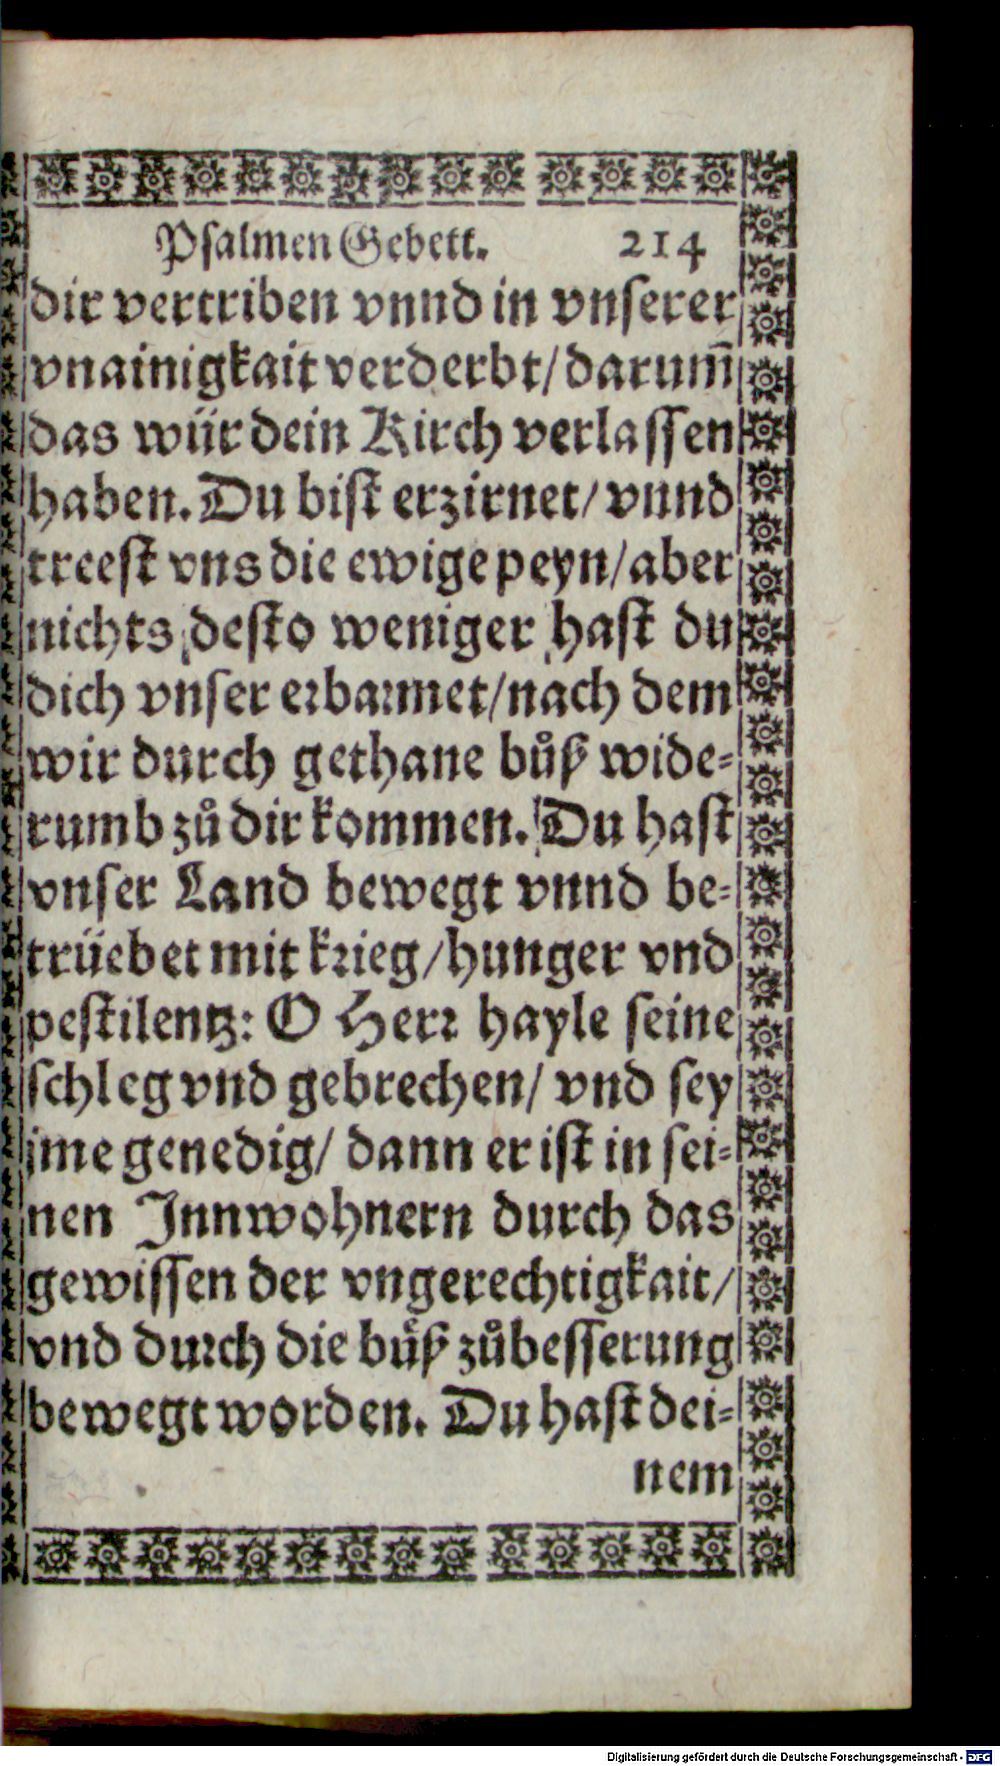 Psalmen Gebett. 214
dir vertriben vnnd in vnserer
vnainigkait verderbt/ darum̃
das wür dein Kirch verlassen
haben. Du bist erzirnet/ vnnd
treest vns die ewige peyn/ aber
nichts desto weniger hast du
dich vnser erbarmet/ nach dem
wir durch gethane bůß wide-
rumb zů dir kommen. Du hast
vnser Land bewegt vnnd be-
trüebet mit krieg/ hunger vnd
pestilentz: O Herr hayle seine
schleg vnd gebrechen/ vnd sey
jme genedig/ dann er ist in sei-
nen Jnnwohnern durch das
gewissen der vngerechtigkait/
vnd durch die bůß zůbesserung
bewegt worden. Du hast dei-
nem
Digitalisierung gefördert durch die Deutsche Forschungsgemeinschaft - DFG